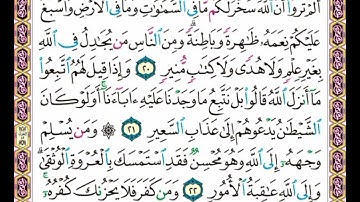 أَلَمْ تَرَوْا۟ أَنَّ ٱللَّهَ سَخَّرَ لَكُم مَّا فِى ٱلسَّمَـٰوَٰتِ وَمَا فِى ٱلْأَرْضِ وَأَسْبَغَ
عَلَيْكُمْ نِعَمَهُۥ ظَـٰهِرَةً وَبَاطِنَةً ۗ وَمِنَ ٱلنَّاسِ مَن يُجَـٰدِلُ فِى ٱللَّهِ
بِغَيْرِ عِلْمٍ وَلَا هُدًى وَلَا كِتَـٰبٍ مُّنِيرٍ ٢٠ وَإِذَا قِيلَ لَهُمُ ٱتَّبِعُوا۟
مَآ أَنزَلَ ٱللَّهُ قَالُوا۟ بَلْ نَتَّبِعُ مَا وَجَدْنَا عَلَيْهِ ءَابَآءَنَآ ۚ أَوَلَوْ كَانَ
ٱلشَّيْطَـٰنُ يَدْعُوهُمْ إِلَىٰ عَذَابِ ٱلسَّعِيرِ ٢١ وَمَن يُسْلِمْ
وَجْهَهُۥٓ إِلَى ٱللَّهِ وَهُوَ مُحْسِنٌ فَقَدِ ٱسْتَمْسَكَ بِٱلْعُرْوَةِ ٱلْوُثْقَىٰ ۗ
وَإِلَى ٱللَّهِ عَـٰقِبَةُ ٱلْأُمُورِ ٢٢ وَمَن كَفَرَ فَلَا يَحْزُنكَ كُفْرُهُۥٓ ۚ